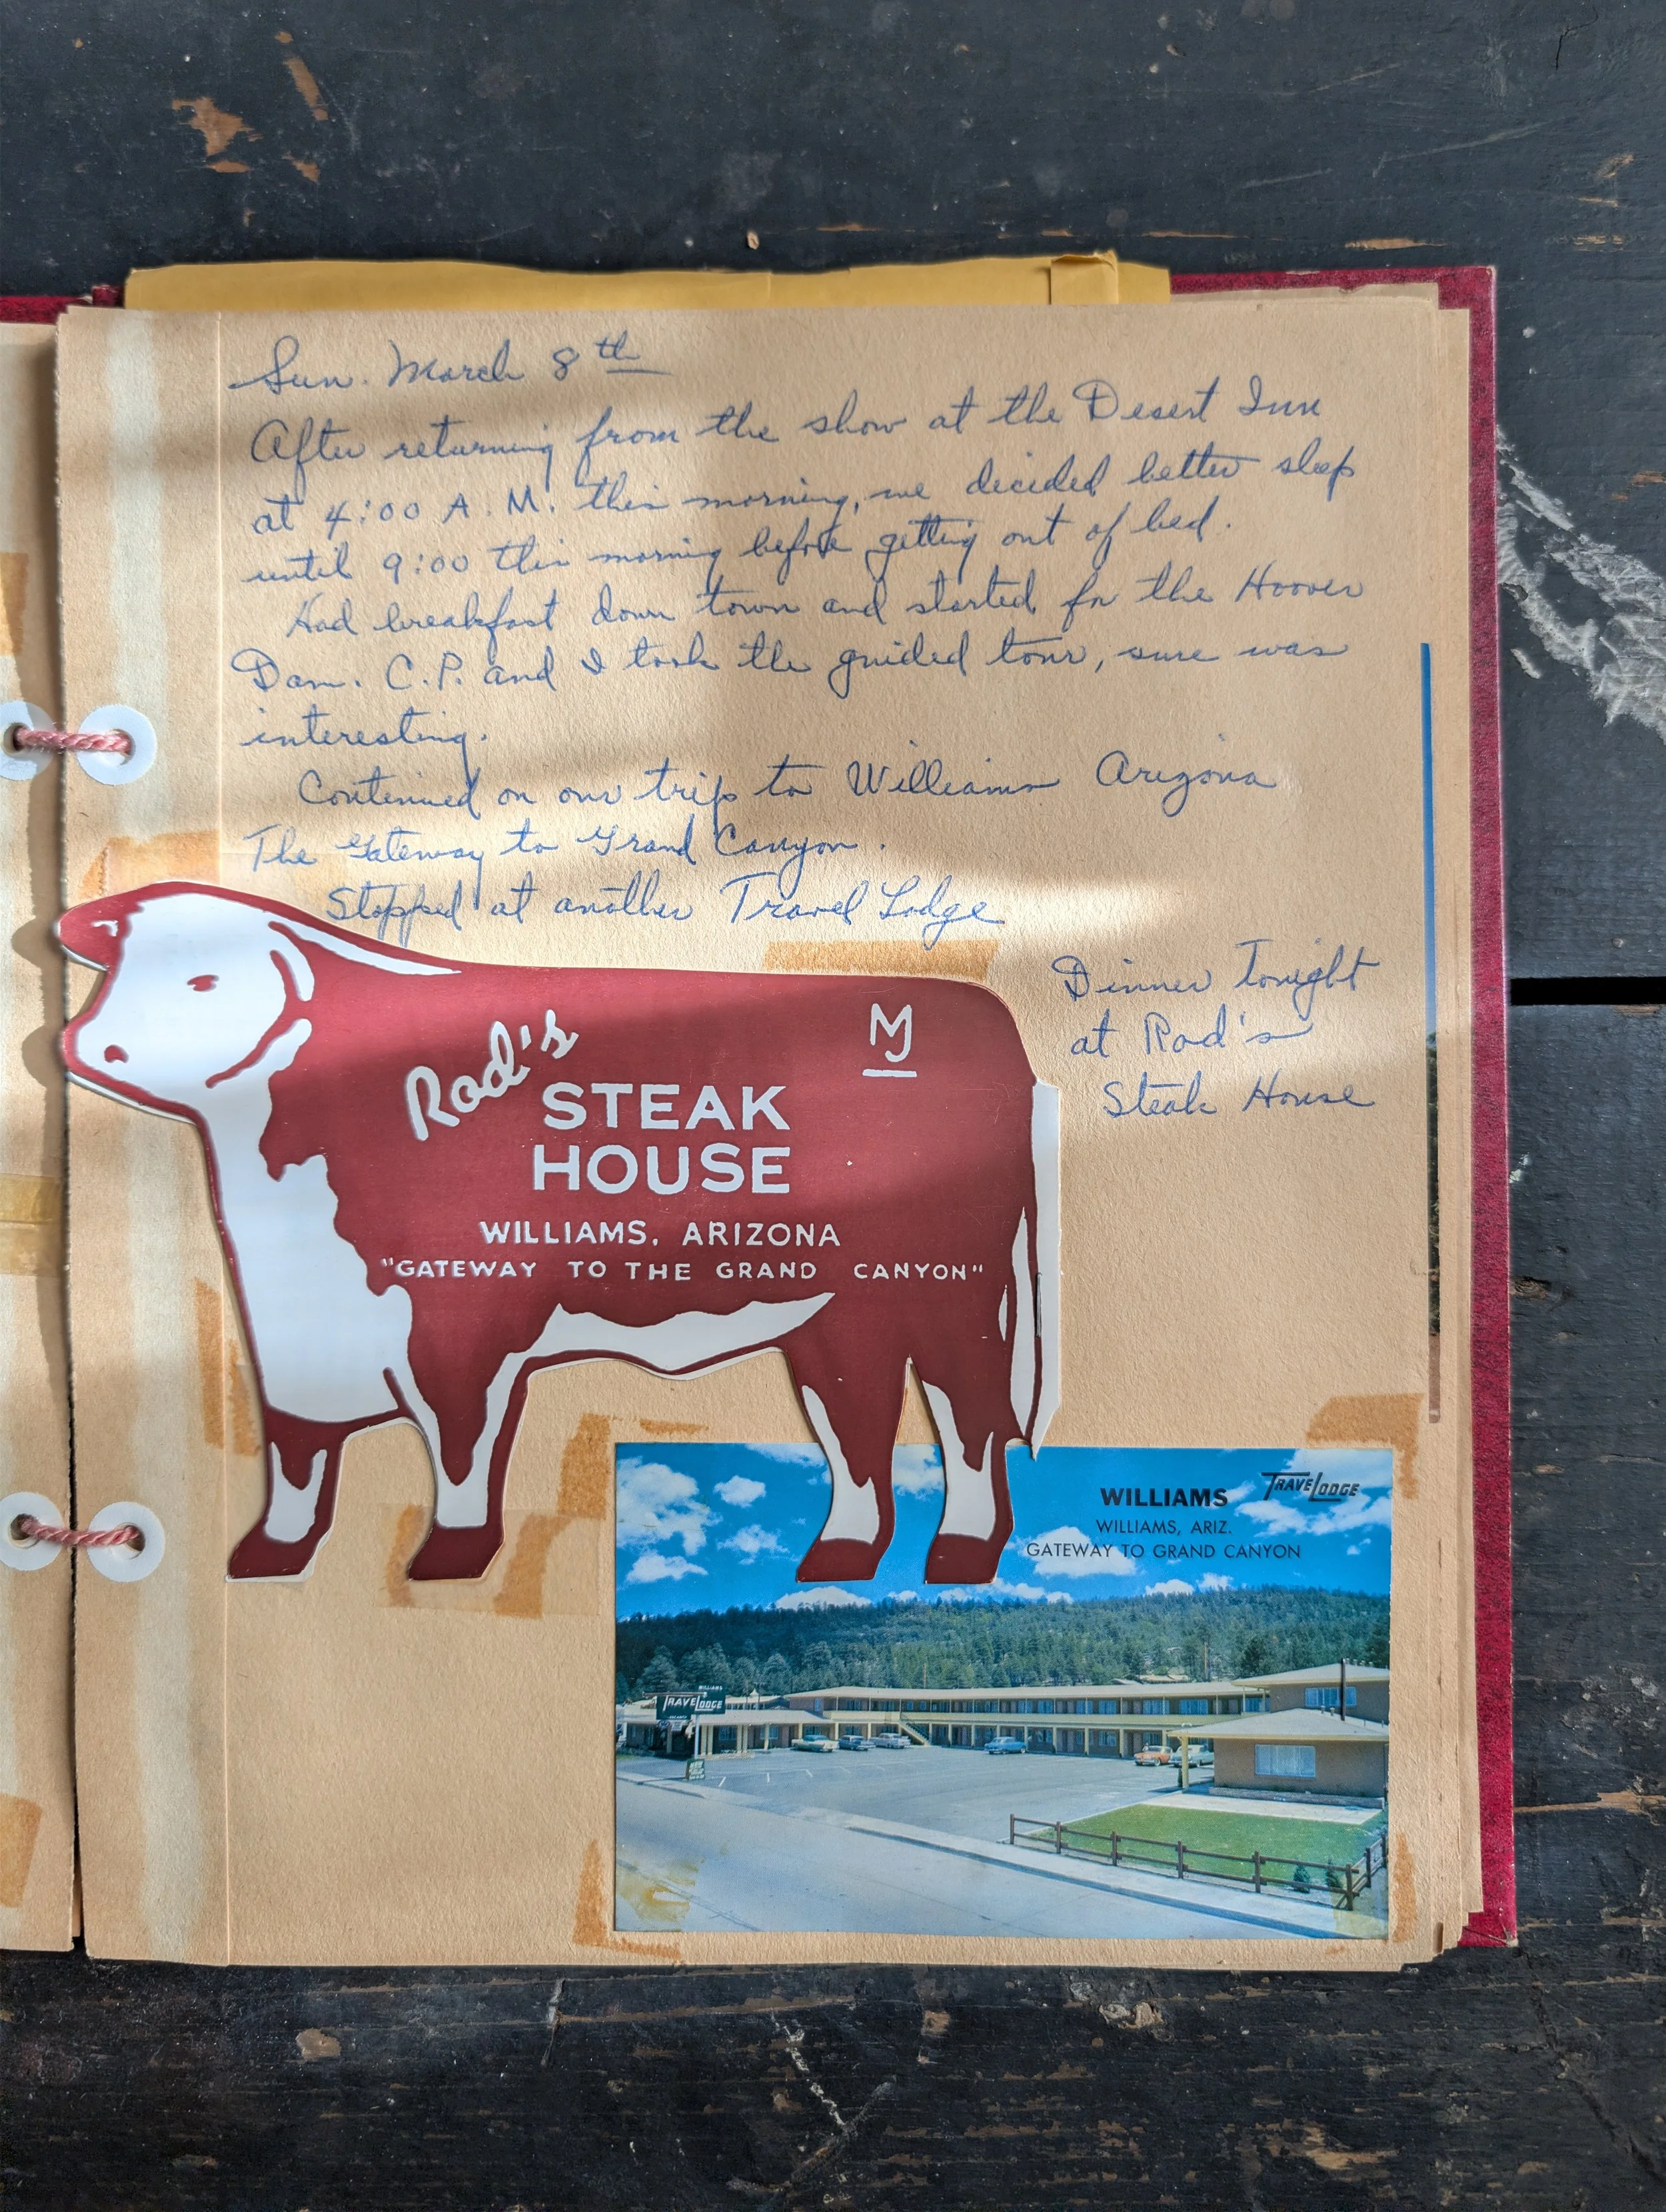 Sun. March 8th
After returning from the show at the Desert Inn
at 4:00 A.M. this morning, we decided better sleep
until 9:00 this morning before getting out of bed.
Had breakfast down town and started for the Hoover
Dam. C.P. and I took the guided tour, sure was
interesting.
Continued on our trip to Williams Arizona
The Gateway to Grand Canyon.
Stopped at another Travel Lodge
Dinner tonight
at Rod's
Steak House
Rod's
MJ
STEAK
HOUSE
WILLIAMS, ARIZONA
"GATEWAY TO THE GRAND CANYON"
WILLIAMS TRAVELODGE
WILLIAMS, ARIZ.
GATEWAY TO GRAND CANYON
WILLIAMS
TRAVELODGE